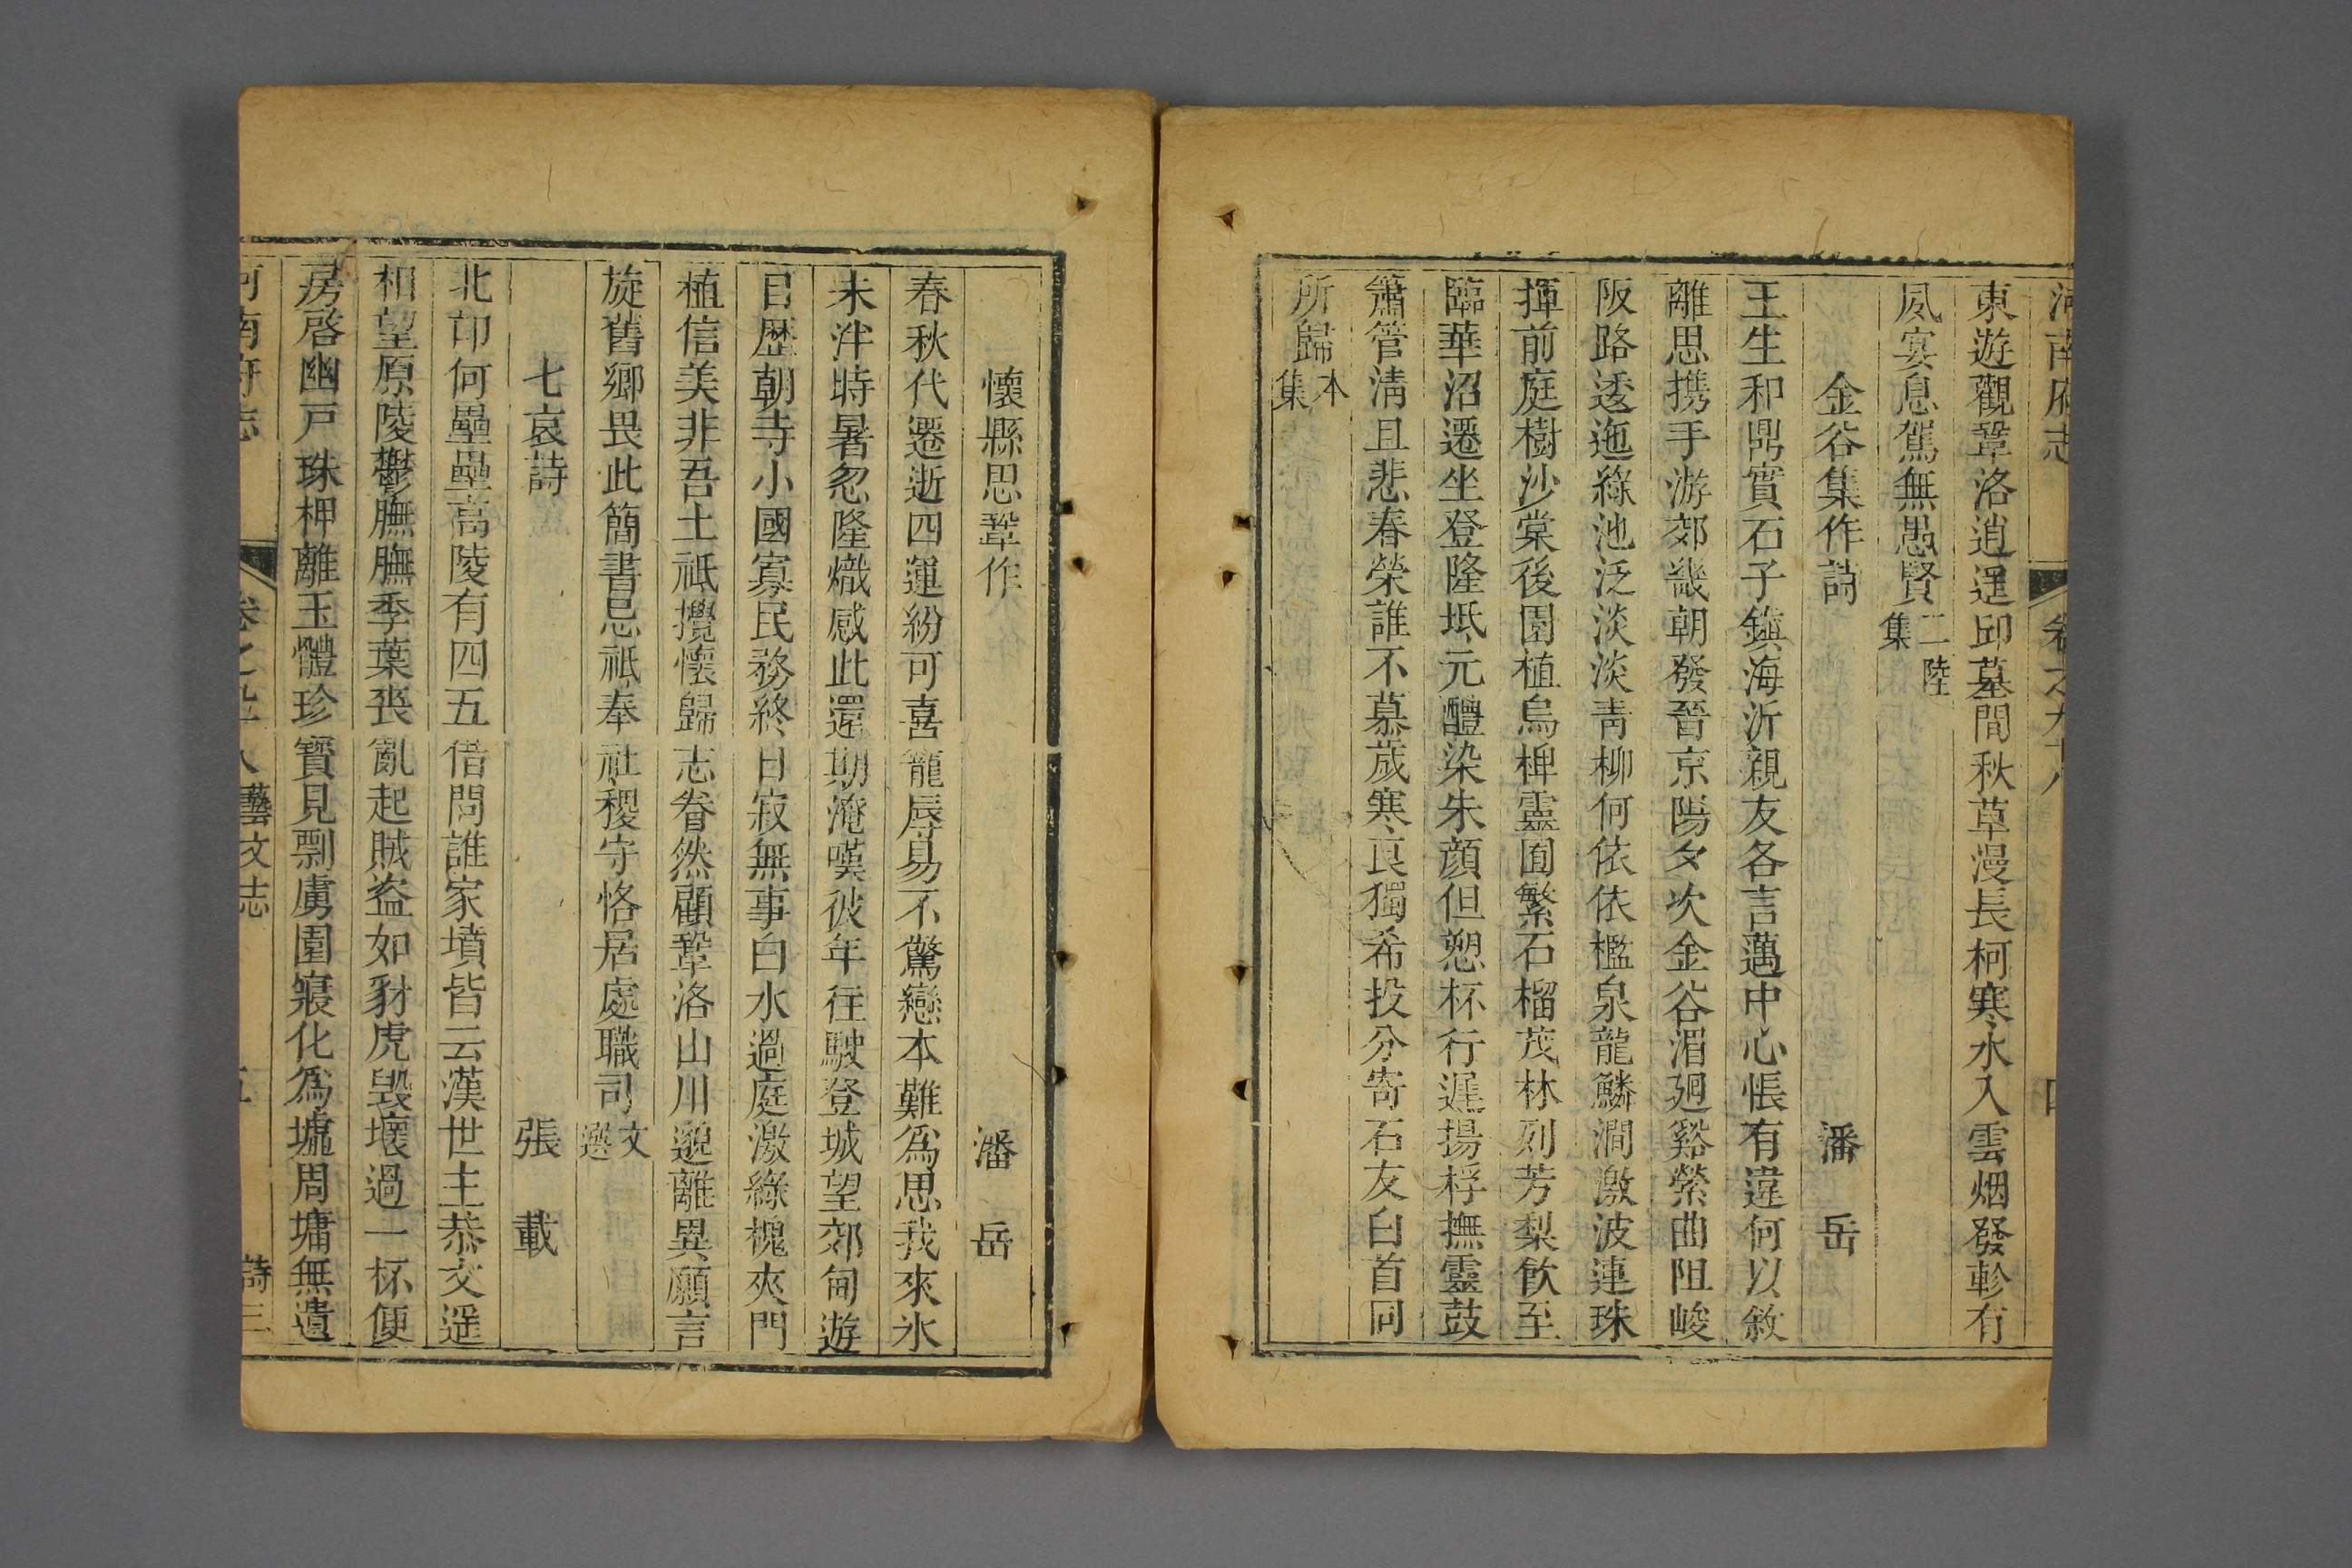 河南府志 卷之九十八 四
東遊觀鞏洛逍遥邱墓間秋草漫長柯寒水入雲烟發軫有
夙宴息駕無愚賢二陸集
金谷集作詩 潘岳
王生和鼎實石子鎮海沂親友各言邁中心悵有違何以敘
離思携手游郊畿朝發晉京陽夕次金谷湄廻谿縈曲阻峻
阪路逶迤綠池泛淡淡青柳何依依檻泉龍鱗澗激波連珠
揮前庭樹沙棠後園植烏椑靈囿繁石榴茂林列芳梨飲至
臨華沼遷坐登隆坻元醴染朱顔但愬杯行遲揚桴撫靈鼓
簫管淸且悲春榮誰不慕歲寒良獨希投分寄石友白首同
所歸本集
懷縣思鞏作 潘岳
春秋代遷逝四運紛可喜寵辱易不驚戀本難爲思我來氷
未泮時暑忽隆熾感此還期淹嘆彼年往駛登城望郊甸遊
目歷朝寺小國寡民務終日寂無事白水過庭激綠槐夾門
植信美非吾土祗攪懷歸志眷然顧鞏洛山川邈離異願言
旋舊鄉畏此簡書忌祗奉社稷守恪居處職司文選
七哀詩 張載
北邙何壘壘高陵有四五借問誰家墳皆云漢世主恭文遥
相望原陵鬱膴膴季葉喪亂起賊盗如豺虎毁壞過一杯便
房啓幽戸珠柙離玉體珍寶見剽虜園寢化爲墟周墉無遺
河南府志 藝文志 五 詩三